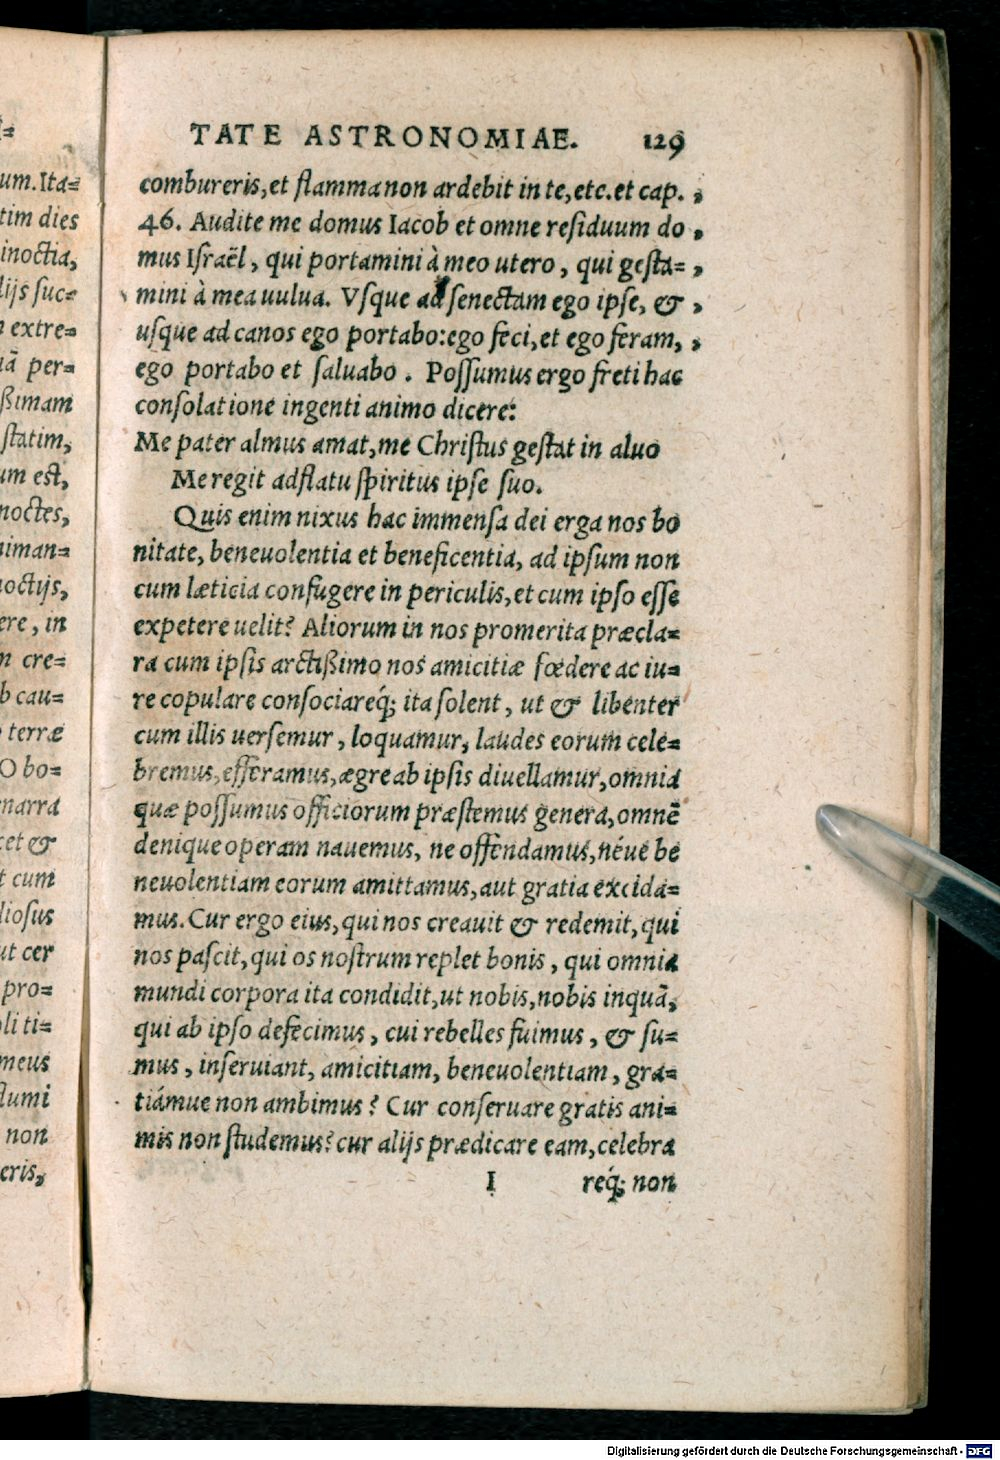 TATE ASTRONOMIAE. 129
combureris,et flamma non ardebit in te,etc.et cap. ,
46. Audite me domus Iacob et omne residuum do ,
mus Israël, qui portamini à meo utero, qui gesta= ,
mini à mea uulua. Vsque ad senectam ego ipse, & ,
usque ad canos ego portabo:ego feci,et ego feram, ,
ego portabo et saluabo. Possumus ergo freti hac
consolatione ingenti animo dicere:
Me pater almus amat,me Christus gestat in aluo
Me regit adflatu spiritus ipse suo.
Quis enim nixus hac immensa dei erga nos bo
nitate, beneuolentia et beneficentia, ad ipsum non
cum læticia confugere in periculis,et cum ipso esse
expetere uelit? Aliorum in nos promerita præcla=
ra cum ipsis arctißimo nos amicitiæ fœdere ac iu=
re copulare consociareq́; ita solent, ut & libenter
cum illis uersemur, loquamur, laudes eorum cele=
bremus,efferamus,ægre ab ipsis diuellamur,omnia
quæ possumus officiorum præstemus genera,omnē
denique operam nauemus, ne offendamus,néue be
neuolentiam eorum amittamus,aut gratia excida=
mus. Cur ergo eius,qui nos creauit & redemit,qui
nos pascit,qui os nostrum replet bonis, qui omnia
mundi corpora ita condidit,ut nobis,nobis inquā,
qui ab ipso defecimus, cui rebelles fuimus, & su=
mus, inseruiant, amicitiam, beneuolentiam, gra=
tiámue non ambimus? Cur conseruare gratis ani=
mis non studemus? cur alijs prædicare eam,celebra
I req́; non
um.Ita=
tim dies
inoctia,
lijs suc=
extre=
per=
ßimam
statim,
um est,
noctes,
niman=
noctijs,
ere, in
cre=
b cau=
terræ
O bo=
narra
cet &
cum
diosus
ut cer
pro=
oli ti=
meus
non
eris,
Digitalisierung gefördert durch die Deutsche Forschungsgemeinschaft - DFG